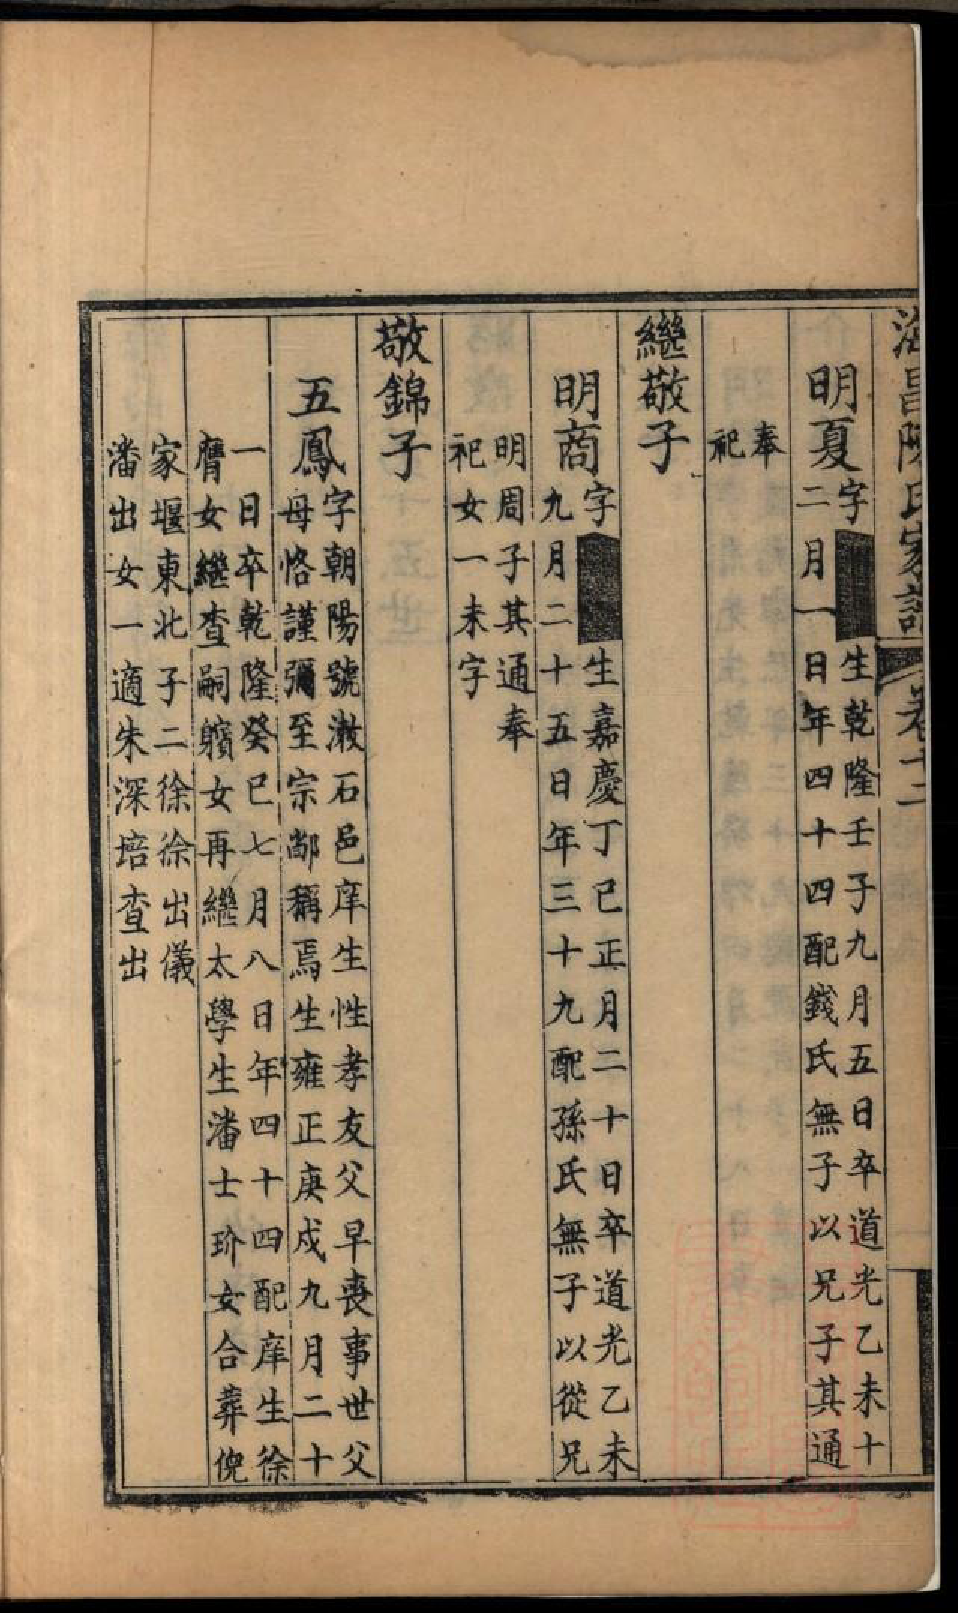 海昌陳氏家譜 卷十二
明夏
字 生乾隆壬子九月五日卒道光乙未十
二月一日年四十四配錢氏無子以兄子其通
奉
祀
繼敬子
明商
字 生嘉慶丁巳正月二十日卒道光乙未
九月二十五日年三十九配孫氏無子以從兄
明周子其通奉
祀女一未字
敬錦子
五鳳
字朝陽號澉石邑庠生性孝友父早喪事世父
母恪謹彌至宗鄰稱焉生雍正庚戌九月二十
一日卒乾隆癸巳七月八日年四十四配庠生徐
膺女繼查嗣女再繼太學生潘士玠女合葬倪
家堰東北子二徐徐出儀
潘出女一適朱深培查出